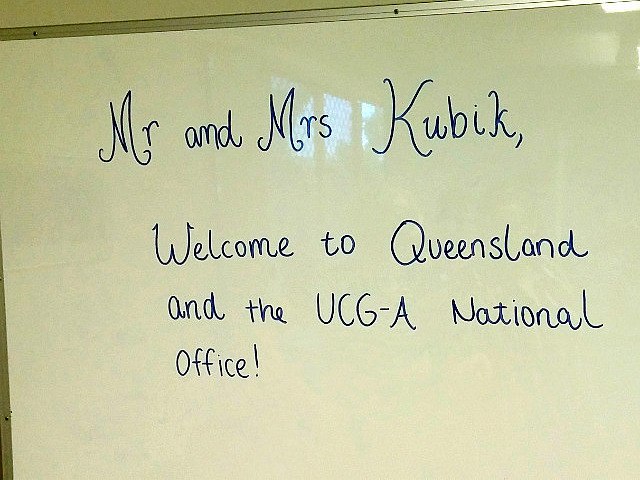 Mr and Mrs Kubik,
Welcome to Queensland
and the UCG-A National
Office!